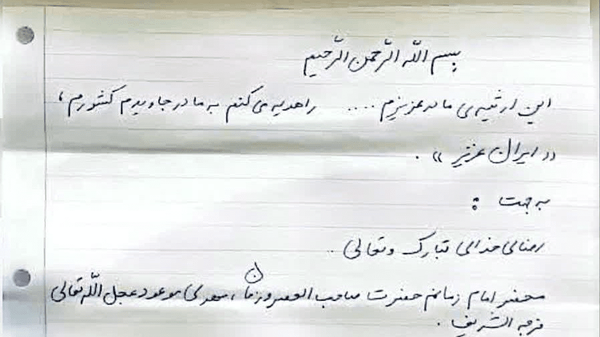 بسم اللّه الرّحمن الرّحیم
این ارثیه‌ی مادر عزیزم .... را هدیه می‌کنم به مادر جاویدم کشورم ،
«ایران عزیز» .
به جهت :
رضای خدای تبارک و تعالی ..
محضر امام زمانم حضرت صاحب العصر و زمان ، مهدی موعود عجل اللّه تعالی
فرجه الشریف .